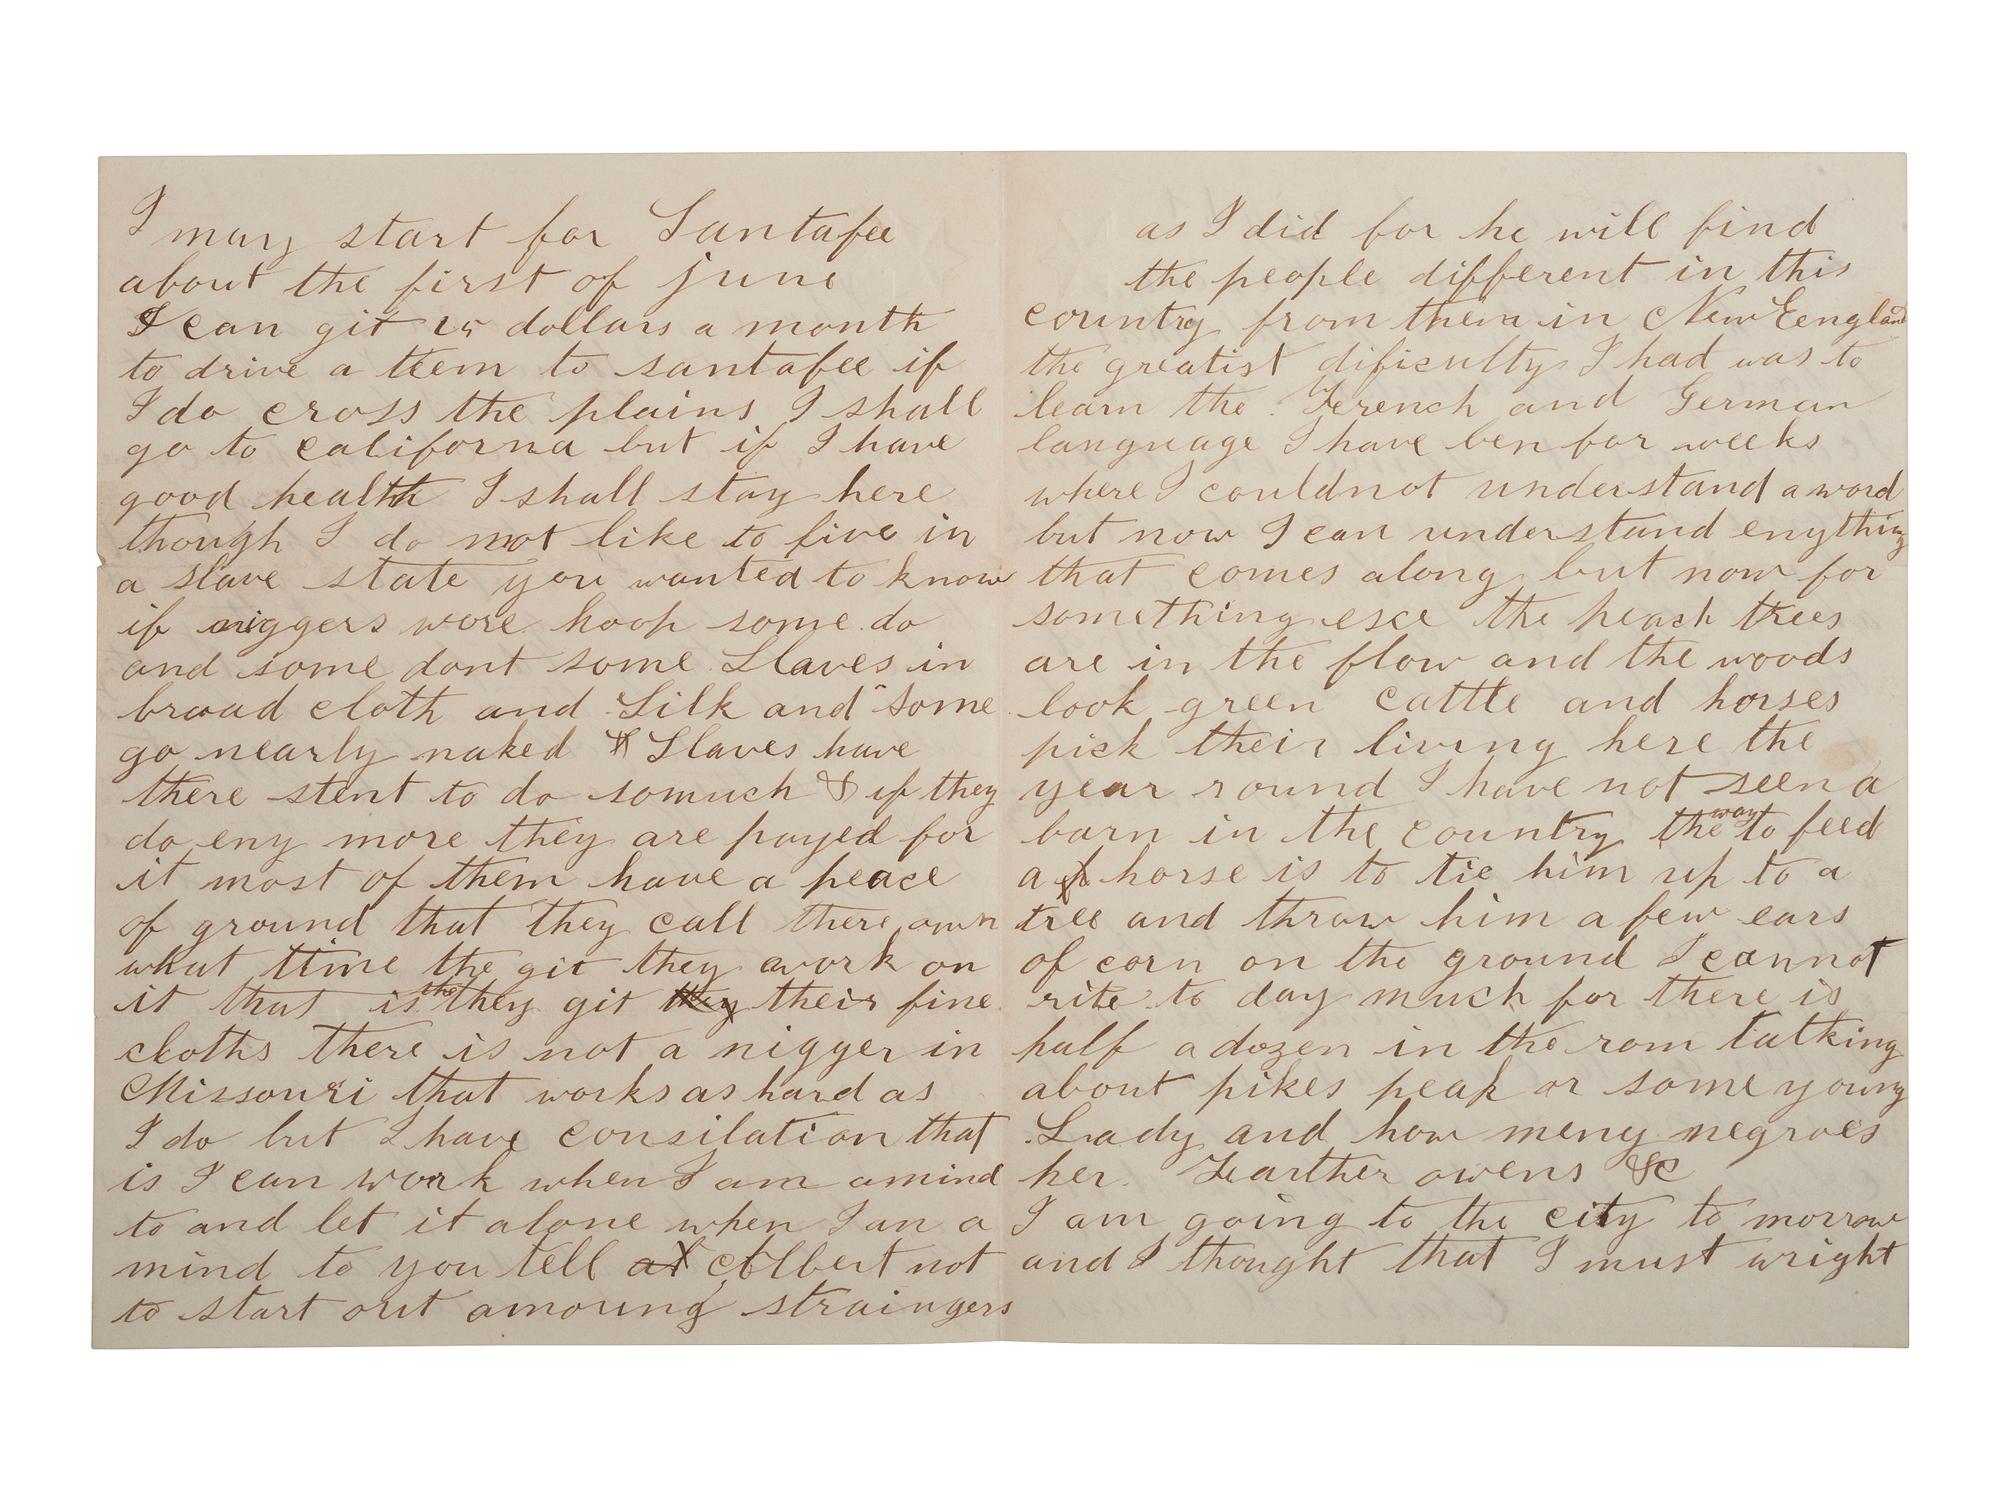 I may start for Santafee
about the first of june
I can git 25 dollars a month
to drive a teem to santafee if
I do cross the plains I shall
go to californa but if I have
good health I shall stay here
though I do not like to live in
a slave state you wanted to know
if niggers wore hoop some do
and some dont some Slaves in
broad cloth and Silk and some
go nearly naked Slaves have
there stent to do somuch & if they
do eny more they are payed for
it most of them have a peace
of ground that they call there own
what time the git they work on
it that is the they git they their fine
cloths there is not a nigger in
Missouri that works as hard as
I do but I have consilation that
is I can work when I am a mind
to and let it alone when I an a
mind to you tell al Albert not
to start out amoung straingers
as I did for he will find
the people different in this
country from them in New Eengland
the greatist dificulty I had was to
learn the Ferench and German
language I have ben for weeks
where I couldnot understand a word
but now I can understand enything
that comes along but now for
something esce the peach trees
are in the flow and the woods
look green cattle and horses
pick their living here the
year round I have not seen a
barn in the country the way to feed
a horse is to tie him up to a
tree and throw him a few ears
of corn on the ground I cannot
rite to day much for there is
half a dozen in the rom talking
about pikes peak or some young
Lady and how meny negroes
her Fearther owens &c
I am going to the city to morrow
and I thought that I must wright